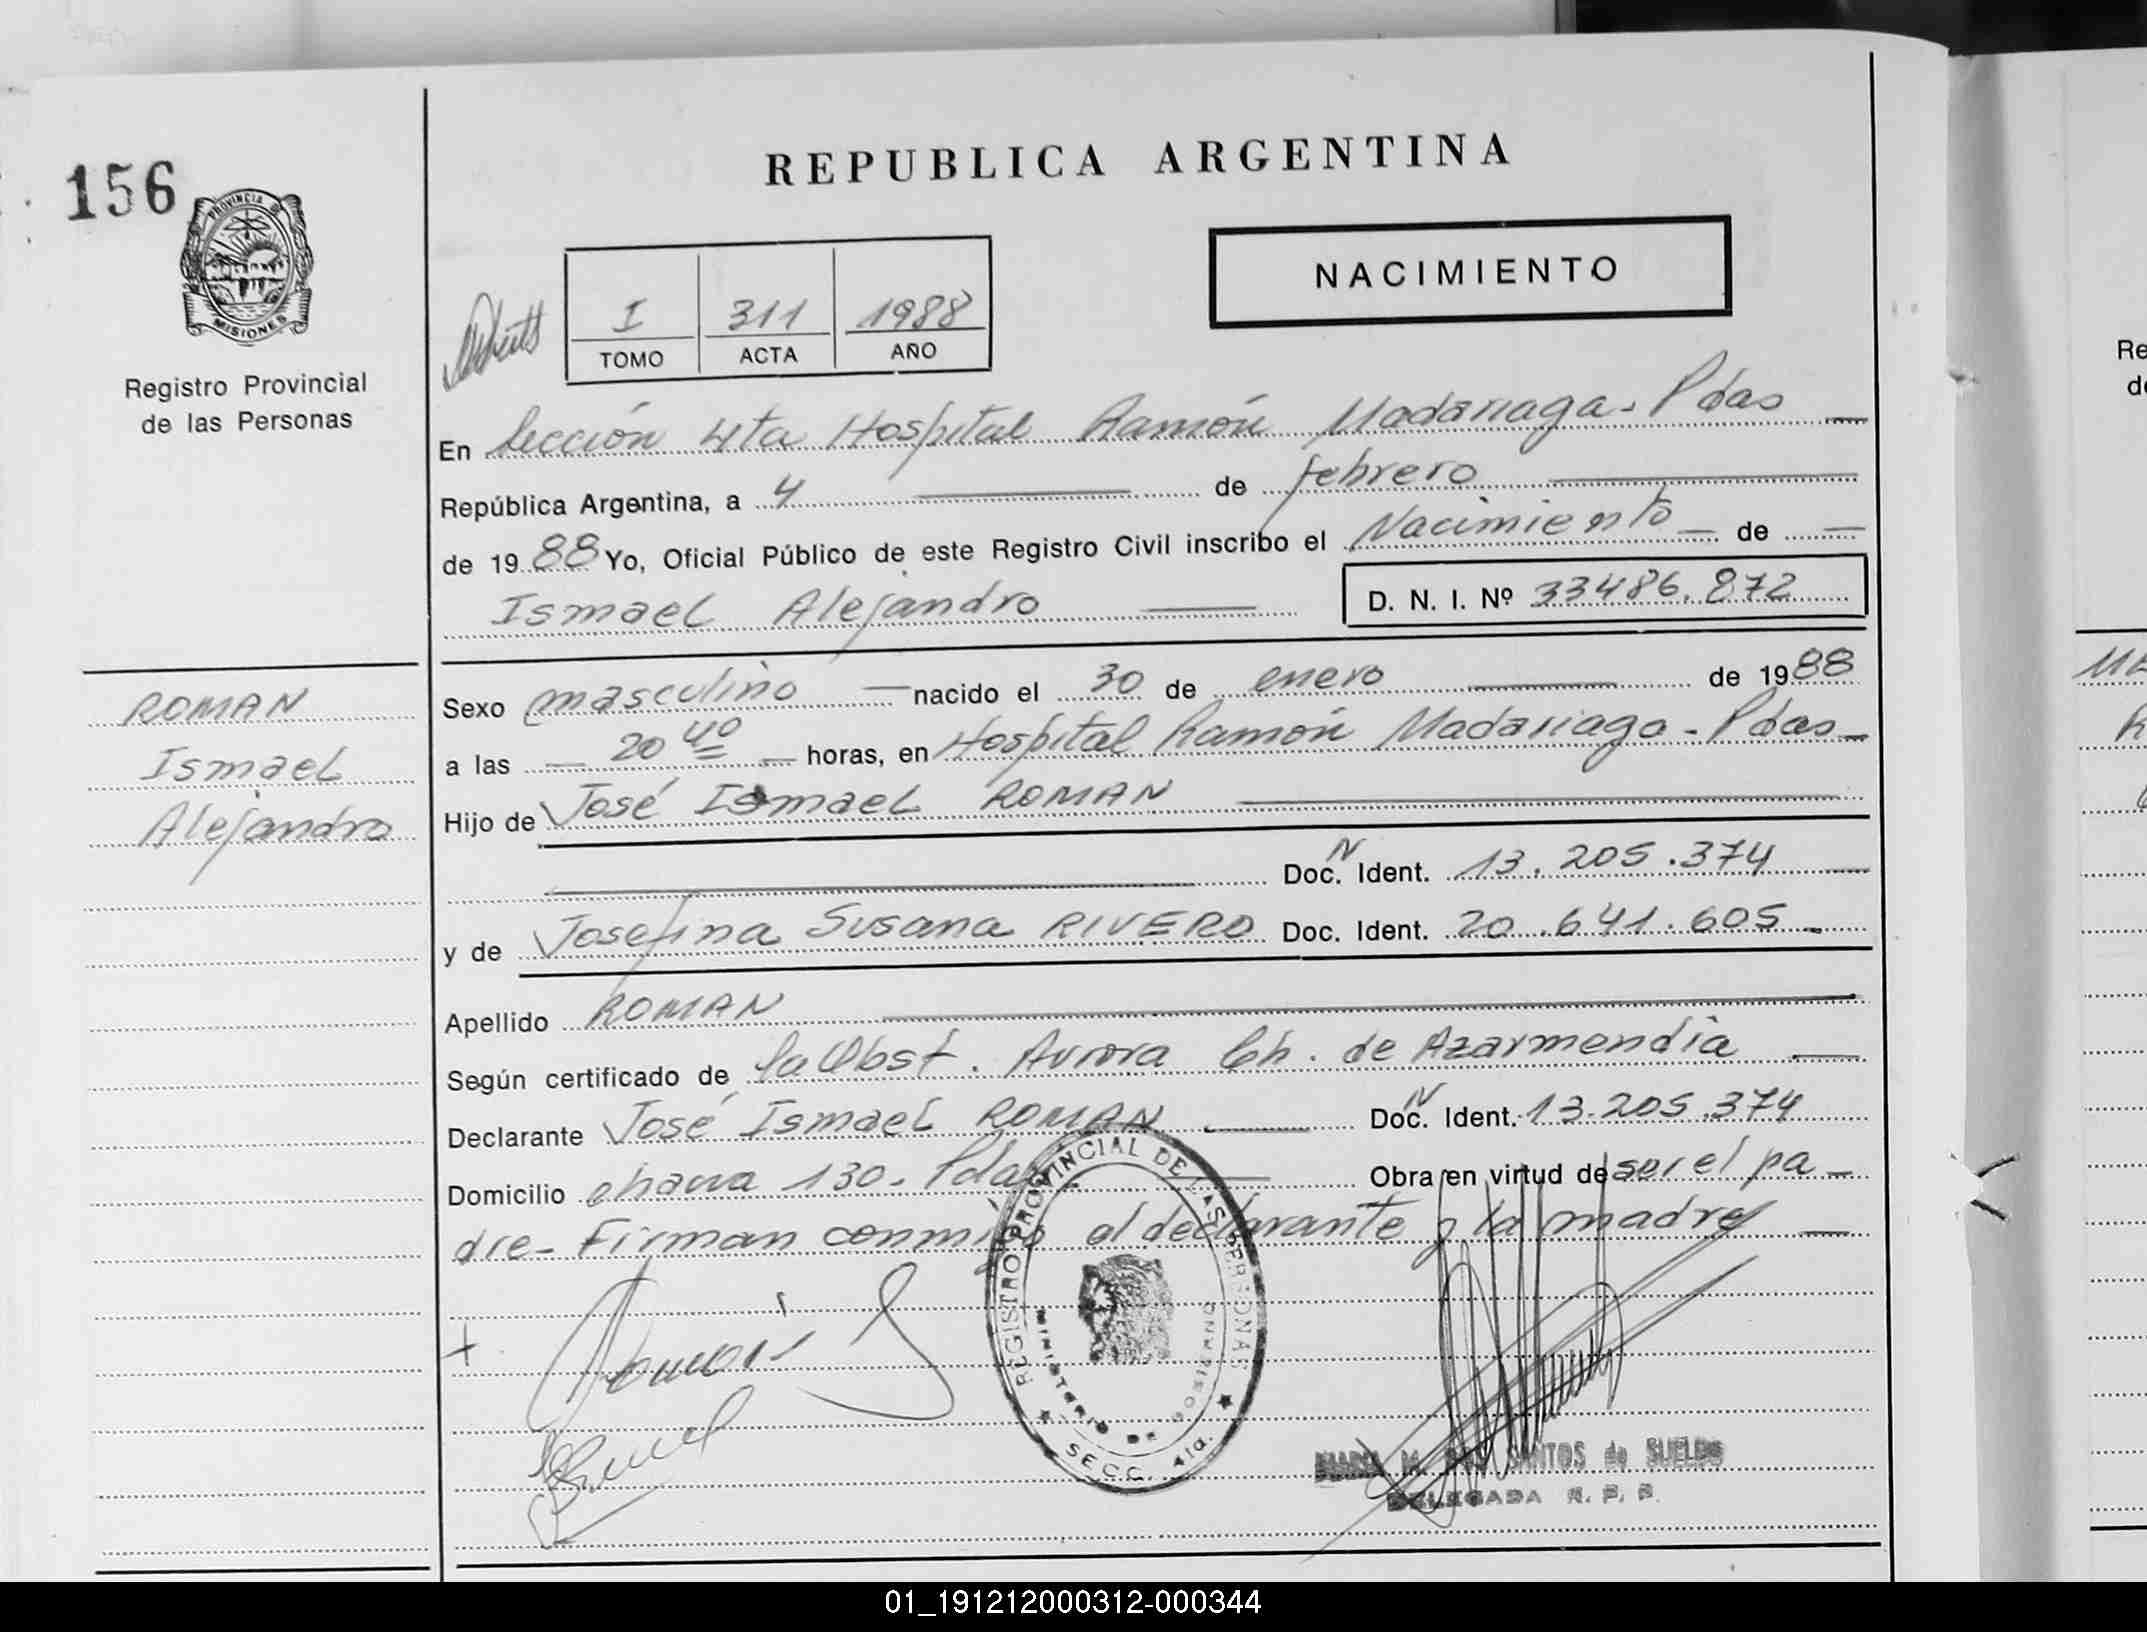 156
PROVINCIA DE
MISIONES
Registro Provincial
de las Personas
ROMAN
Ismael
Alejandro
REPUBLICA ARGENTINA
I 311 1988
TOMO ACTA AÑO
NACIMIENTO
En Sección 4ta Hospital Ramón Madariaga - Pdas
República Argentina, a 4 de febrero
de 1988 Yo, Oficial Público de este Registro Civil inscribo el Nacimiento de
Ismael Alejandro D. N. I. Nº 33486.872
Sexo masculino nacido el 30 de enero de 1988
a las 20 40 horas, en Hospital Ramón Madariaga - Pdas
Hijo de José Ismael ROMAN
N
Doc. Ident. 13.205.374
y de Josefina Susana RIVERO Doc. Ident. 20.641.605
Apellido ROMAN
Según certificado de la Obst. Aurora Ch. de Azarmendia
N
Declarante José Ismael ROMAN Doc. Ident. 13.205.374
Domicilio 130. Pdas Obra en virtud de ser el pa
dre - Firman conmigo el declarante y la madre
REGISTRO PROVINCIAL DE LAS PERSONAS
MINISTERIO DE GOBIERNO
SECC. 4ta.
M. DOS SANTOS de SUELDO
DELEGADA R. P. P.
Re
de
01_191212000312-000344